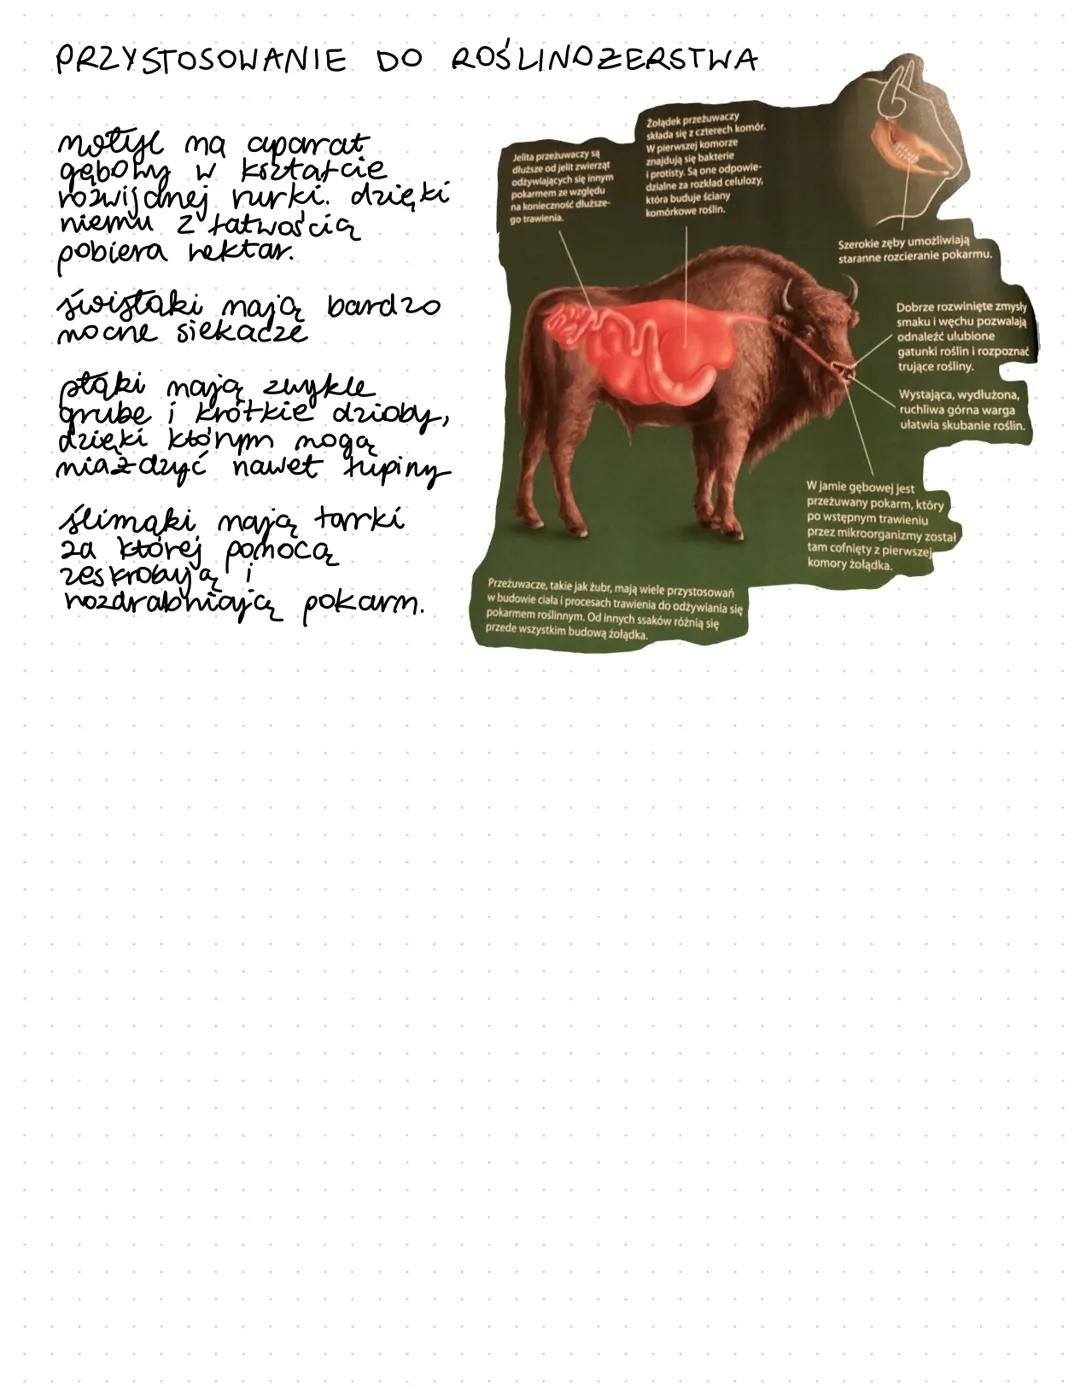 PRZYSTOSOWANIE DO ROŚLINOŻERSTWA
motyl ma aparat
gębowy w kształcie
rozwijanej rurki. dzięki
niemu z łatwością
pobiera nektar.
świstaki mają bardzo
mocne siekacze
ptaki mają zwykle
grube i krótkie dzioby,
dzięki którym mogą
miażdżyć nawet łupiny
ślimaki mają tarki
za której pomocą
zeskrobują i
rozdrabniają pokarm.
Jelita przeżuwaczy są
dłuższe od jelit zwierząt
odżywiających się innym
pokarmem ze względu
na konieczność dłuższe-
go trawienia.
Żołądek przeżuwaczy
składa się z czterech komór.
W pierwszej komorze
znajdują się bakterie
i protisty. Są one odpowie-
dzialne za rozkład celulozy,
która buduje ściany
komórkowe roślin.
Szerokie zęby umożliwiają
staranne rozcieranie pokarmu.
Dobrze rozwinięte zmysły
smaku i węchu pozwalają
odnaleźć ulubione
gatunki roślin i rozpoznać
trujące rośliny.
Wystająca, wydłużona,
ruchliwa górna warga
ułatwia skubanie roślin.
W jamie gębowej jest
przeżuwany pokarm, który
po wstępnym trawieniu
przez mikroorganizmy został
tam cofnięty z pierwszej
komory żołądka.
Przeżuwacze, takie jak żubr, mają wiele przystosowań
w budowie ciała i procesach trawienia do odżywiania się
pokarmem roślinnym. Od innych ssaków różnią się
przede wszystkim budową żołądka.